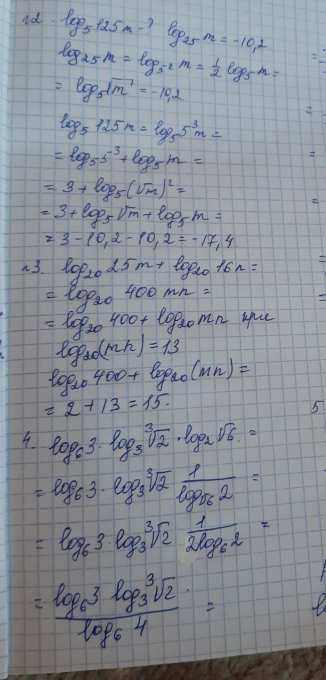 №2. log₅125m - ? log₂₅m = -10,2
log₂₅m = log₅²m = 1/2 log₅m =
= log₅√m = -10,2
log₅125m = log₅5³m =
= log₅5³ + log₅m =
= 3 + log₅(√m)² =
= 3 + log₅√m + log₅m =
= 3 - 10,2 - 10,2 = -17,4
№3. log₂₀25m + log₂₀16n =
= log₂₀ 400mn =
= log₂₀400 + log₂₀mn при
log₂₀(mn) = 13
log₂₀400 + log₂₀(mn) =
= 2 + 13 = 15.
4. log₆3 · log₃∛2 · log₂√6 =
= log₆3 · log₃∛2 · 1/log√₆2 =
= log₆3 · log₃∛2 · 1/2log₆2 =
= log₆3 · log₃∛2 · / log₆4 =
5